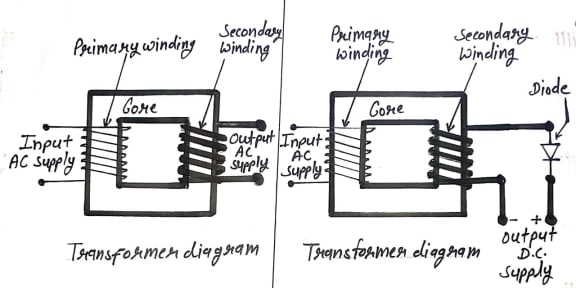 Primary winding
Secondary
winding
Core
Input
AC Supply
Output
AC
Supply
Transformer diagram
Primary
winding
Secondary
winding
Core
Diode
Input
AC
Supply
- +
output
D.C.
Supply
Transformer diagram